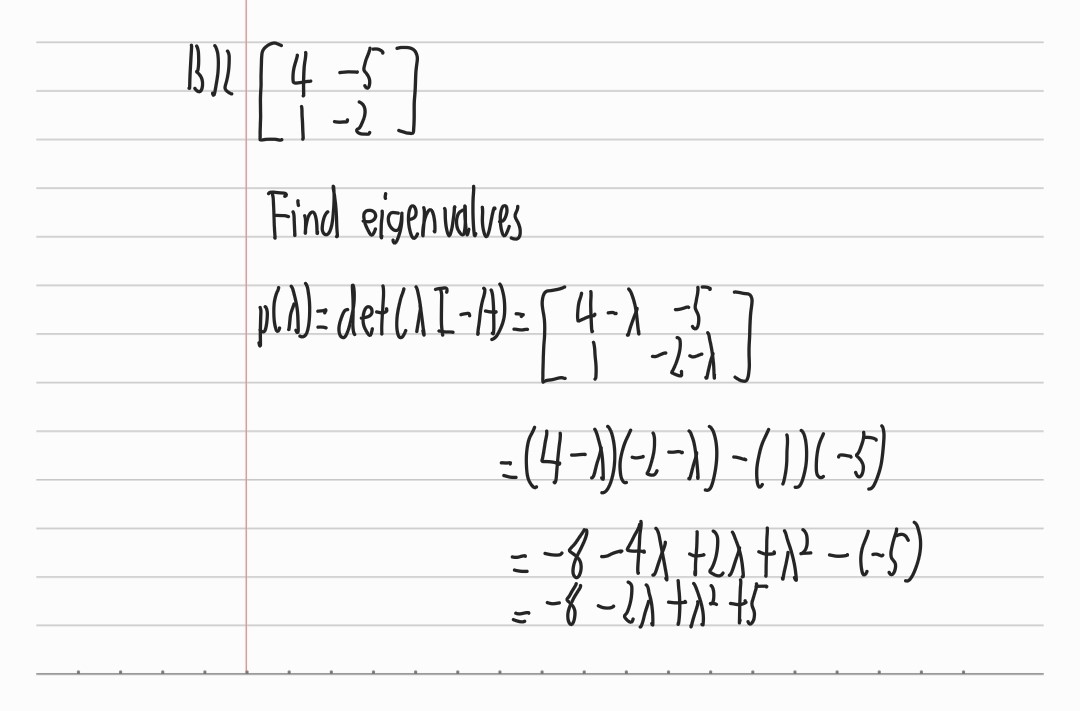 B)2 [4 -5
1 -2]
Find eigenvalues
p(λ)=det(λI-A)=[4-λ -5
1 -2-λ]
=(4-λ)(-2-λ)-(1)(-5)
=-8-4λ+2λ+λ²-(-5)
=-8-2λ+λ²+5